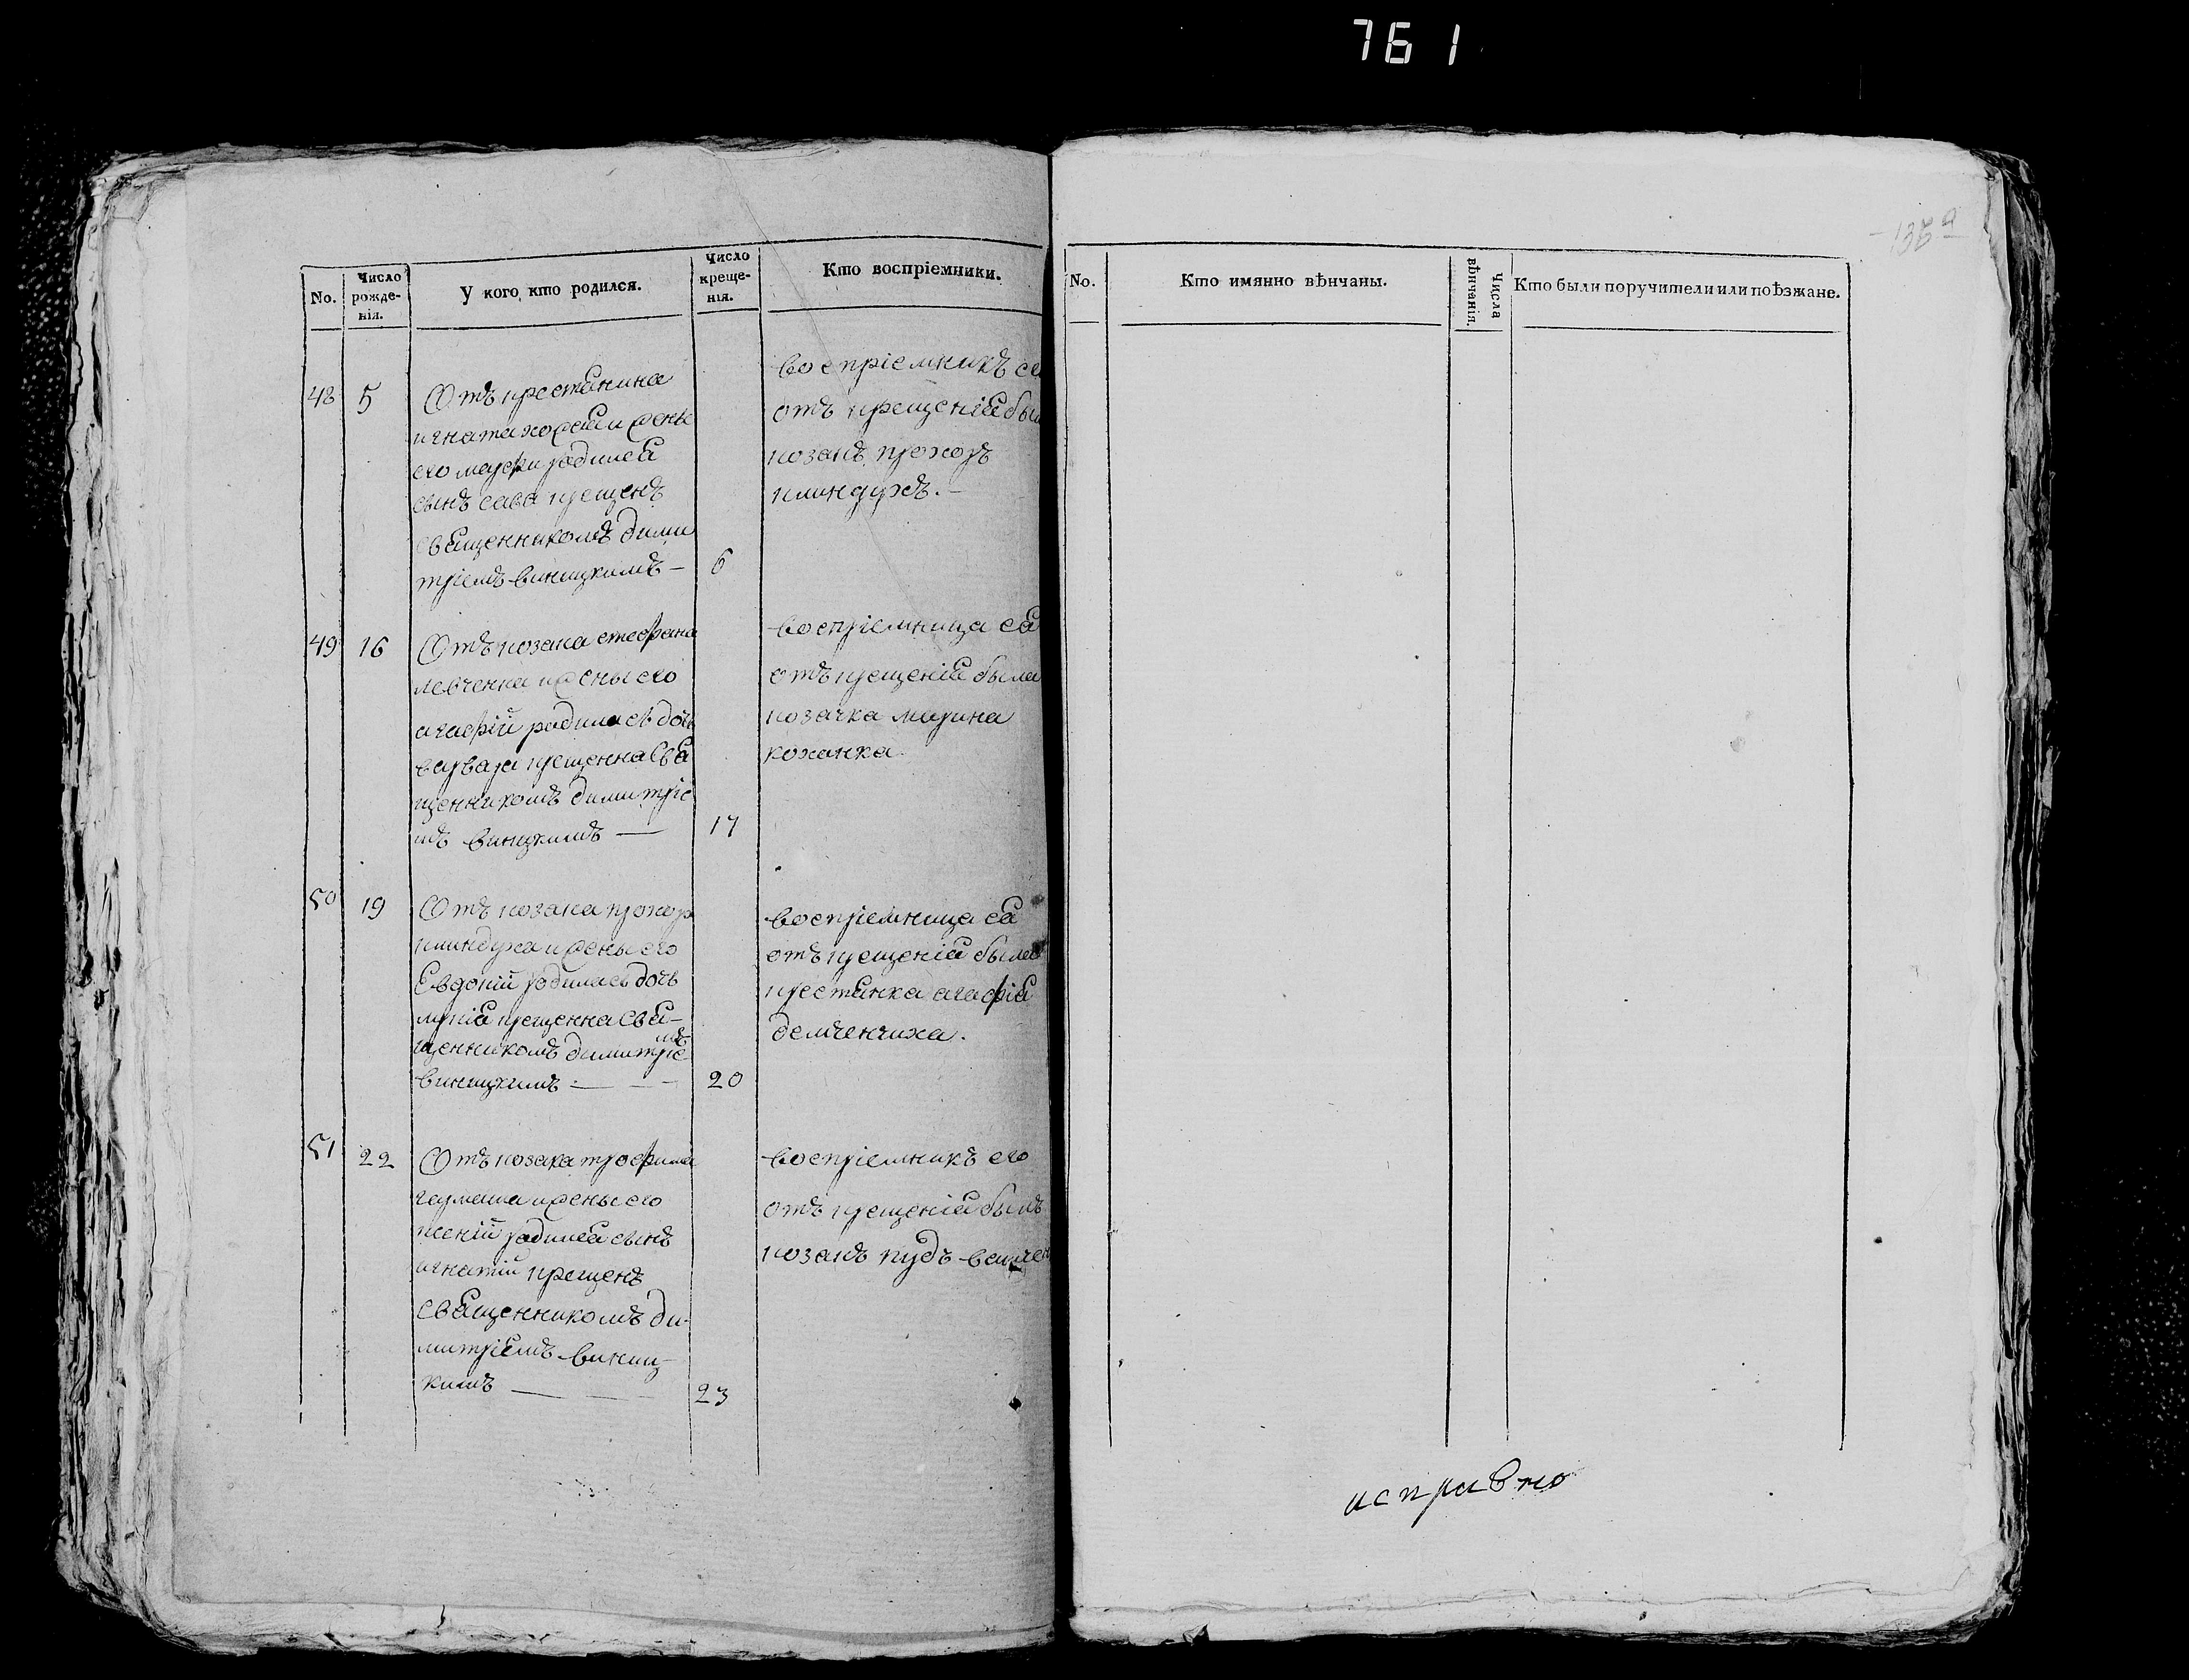 761
No.
Число рожденія.
У кого, кто родился.
Число крещенія.
Кто воспріемники.
48
5
Отъ крестянина
игната и жены
его марфи родился
сынъ сава крещенъ
священникомъ дими
тріемъ виницкимъ —
6
воспріемникъ
отъ крещенія
козакъ прохоръ
климдухъ. —
49
16
Отъ козака стефана
левченка и жены его
агафіи родилась дочь
варвара крещенна свя
щенникомъ димитріе
мъ виницкимъ —
17
воспріемница ея
отъ крещенія была
козачка марина
коханка
50
19
Отъ козака прохора
климдуха и жены его
Евдокіи родилась дочь
крещенна свя-
щенникомъ димитріемъ
виницкимъ — —
20
воспріемница ея
отъ крещенія была
крестянка агафія
демченчиха.
51
22
Отъ козака трофима
и жены его
ксеніи родился сынъ
игнатій крещенъ
священникомъ ди-
митріемъ виниц-
кимъ — — —
23
воспріемникъ его
отъ крещенія былъ
козакъ
No.
Кто имянно вѣнчаны.
Числа вѣнчанія.
Кто были поручители или поѣзжане.
исправно